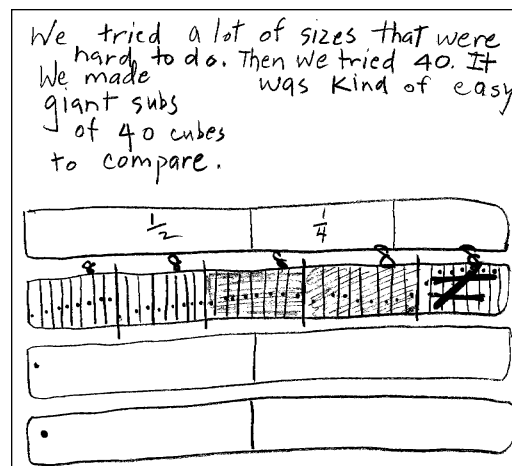 We tried a lot of sizes that were
hard to do. Then we tried 40. It
We made was kind of easy
giant subs
of 40 cubes
to compare.
1/2 1/4
8 8 8 8 8